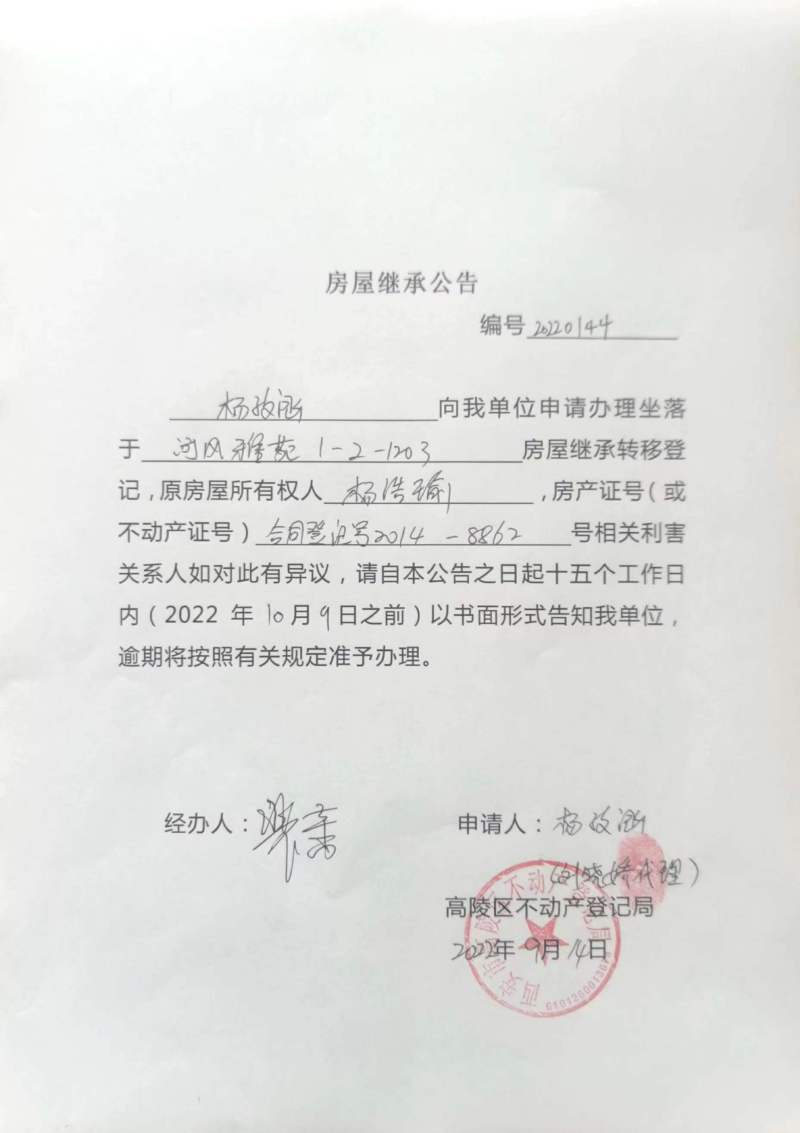 房屋继承公告
编号 20220144
杨孜涵 向我单位申请办理坐落
于 河风雅苑 1-2-1203 房屋继承转移登
记，原房屋所有权人 杨浩瑜 ，房产证号（或
不动产证号）合同登记号2014-8862 号相关利害
关系人如对此有异议，请自本公告之日起十五个工作日
内（2022 年 10月9日之前）以书面形式告知我单位，
逾期将按照有关规定准予办理。
经办人：
申请人：杨孜涵
（刘晓娇代理）
高陵区不动产登记局
2022年 9月14日